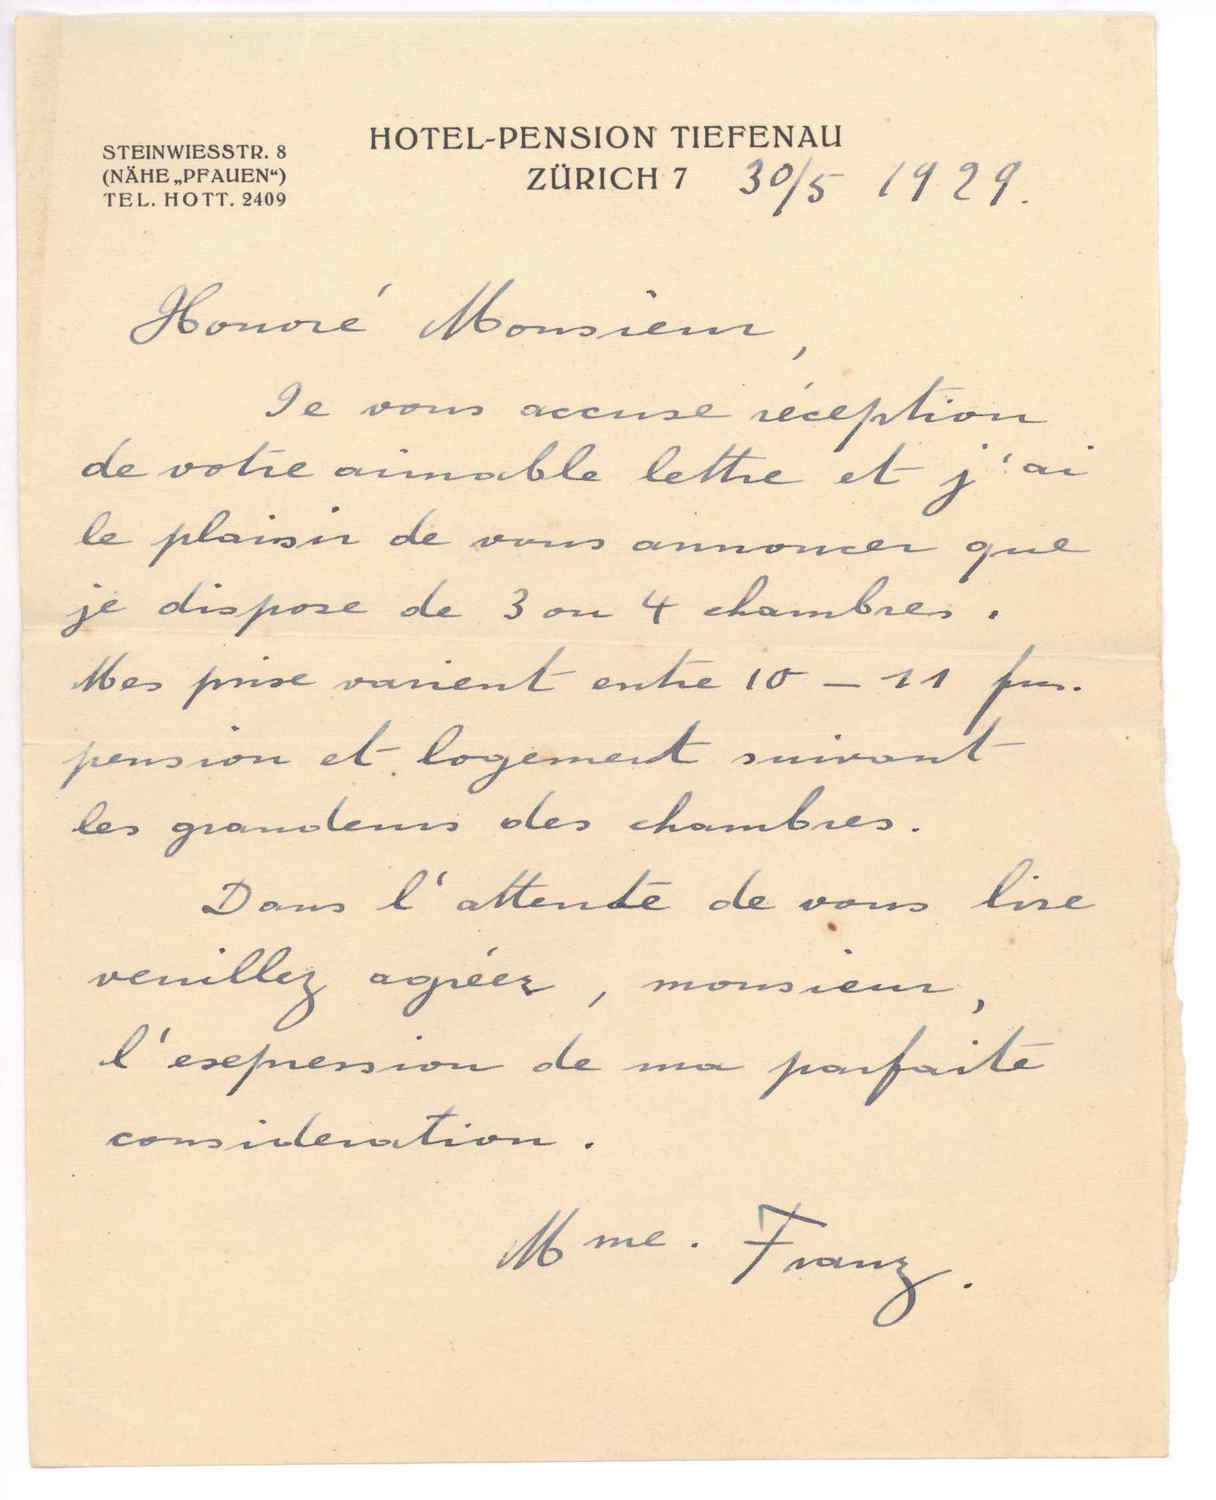 HOTEL-PENSION TIEFENAU
STEINWIESSTR. 8
(NÄHE „PFAUEN“)
TEL. HOTT. 2409
ZÜRICH 7 30/5 1929.
Honoré Monsieur,
Je vous accuse réception
de votre aimable lettre et j'ai
le plaisir de vous annoncer que
je dispose de 3 ou 4 chambres.
Mes prix varient entre 10 – 11 frs.
pension et logement suivant
les grandeurs des chambres.
Dans l'attente de vous lire
veuillez agréez, monsieur,
l'expression de ma parfaite
consideration.
Mme. Franz.